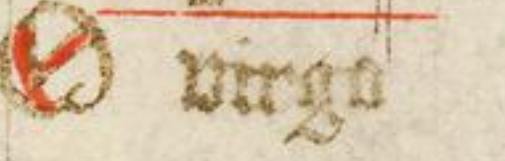 O virgo